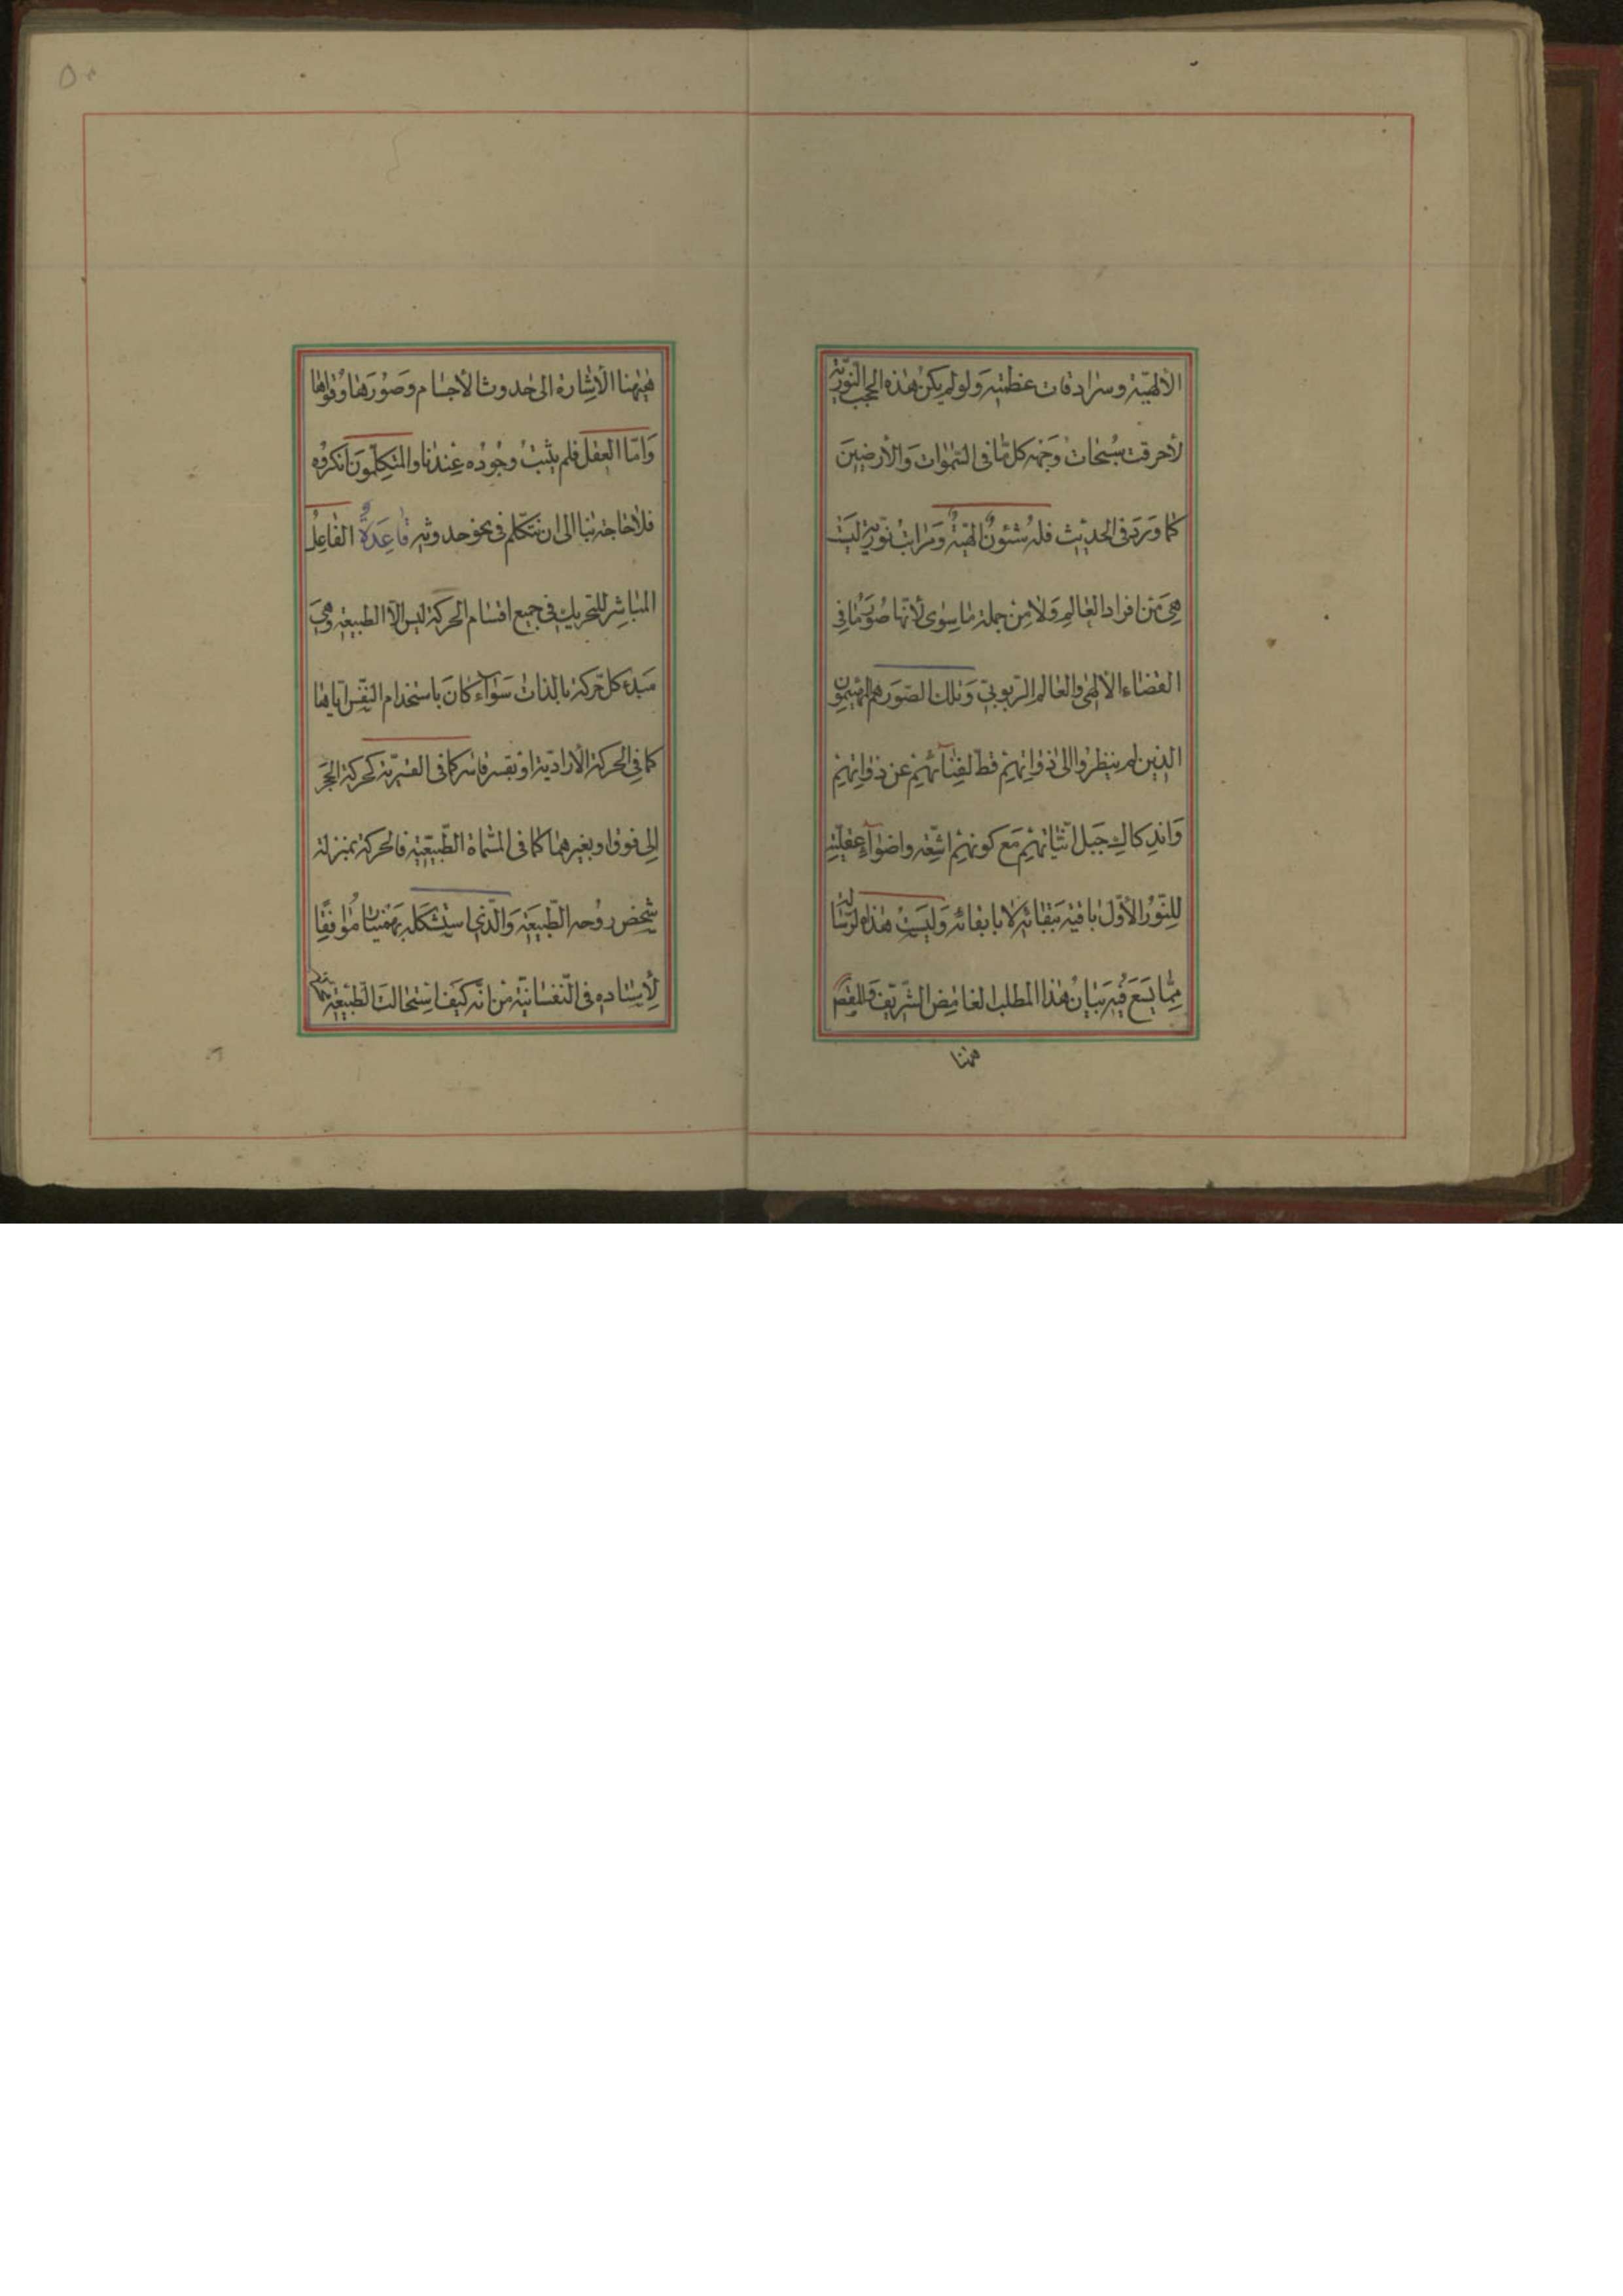 الألهيّة وسرادقات عظمته ولو لم يكن هذه الحجب النوريّة
لأحرقت سُبُحات وَجهه كل ما فى السّموات وَالأرضينَ
كما ورد فى الحديث فله شئونٌ الهيّةٌ وَمَراتبُ نوريّة ليست
هِىَ مِن افراد العالمِ وَلا مِن جملة ما سِوى لأنّها صُوَر ما فى
القضاء الألهى والعالم الرّبوبىّ وَتلك الصّور هم المهيّمون
الذين لم ينظروا الى ذواتهِم قطّ لفنآئهِم عن ذواتهِم
وَاندِكاك جَبل انّيّاتهِم مَع كونهِم اشّعة واضوآء عقليّة
للنّور الأوّل باقية ببقائه لا بابقائه وَليسَت هذه الرّسالة
مِمّا يسَع فيه بَيانُ هذا المطلب الغامِض الشّريف وَالمقصَد
ههنا
٥٠
هٰيهنا الأشارة الى حدوث الأجسام وصُوَرها وقُواها
وَامّا العقل فلم يثبت وجُوده عِندنا والمتكلّمون انكروه
فلا حاجة بنا الى ان نتكلّم فى نحو حدوثه قاعَدةٌ الفاعِلُ
المباشِر للتّحريك فى جميع اقسام الحركة ليس الّا الطبيعة وهىَ
مَبدء كل حركة بالذات سَوآء كانَ باستخدام النفس ايّاها
كما فِى الحركة الأراديّة او بقسر قاسر كما فى القسريّة كحركة الحجَر
الى فوق او بغيرهما كما فى المسمّاة الطّبيعيّة فالحركة بمنزلة
شخص روُحه الطّبيعَة وَالّذى استشكله بَهمنيار مُوافقًا
لأستاده فى النّفسانيّة من انّه كيَف استحالت الطّبيعة